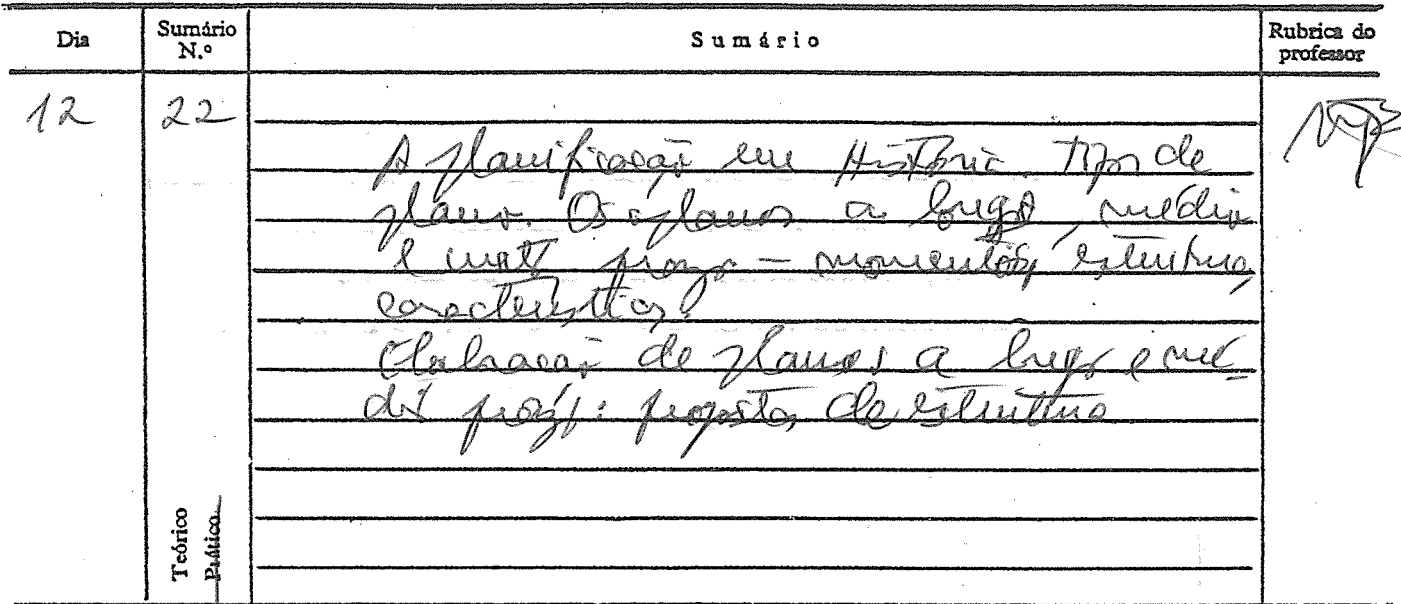 Dia Sumário N.º Sumário Rubrica do professor
12 22
A planificação em História. Tipos de
planos. Os planos a longo, médio
e curto prazo – momentos, estrutura,
características.
Elaboração de planos a longo e mé-
dio prazo: propostas de estrutura
Teórico
Prático